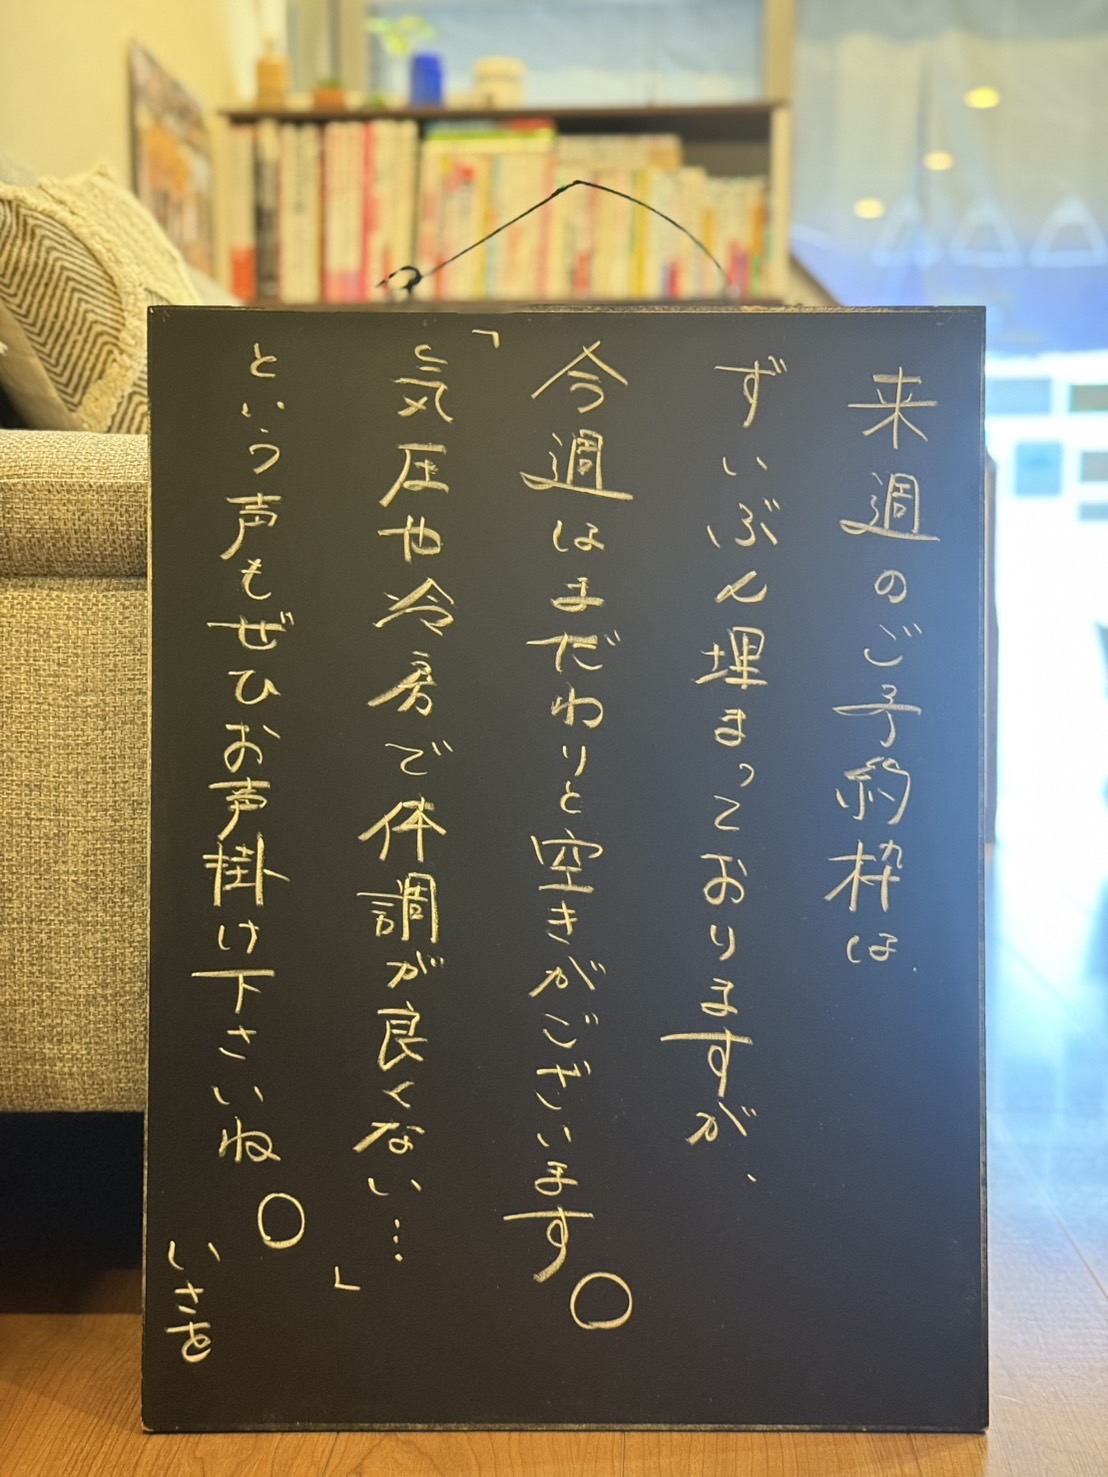 来週のご予約枠は
ずいぶん埋まっておりますが、
今週はまだわりと空きがございます。
「気圧や冷房で体調が良くない…」
という声もぜひお声掛け下さいね。
いさを